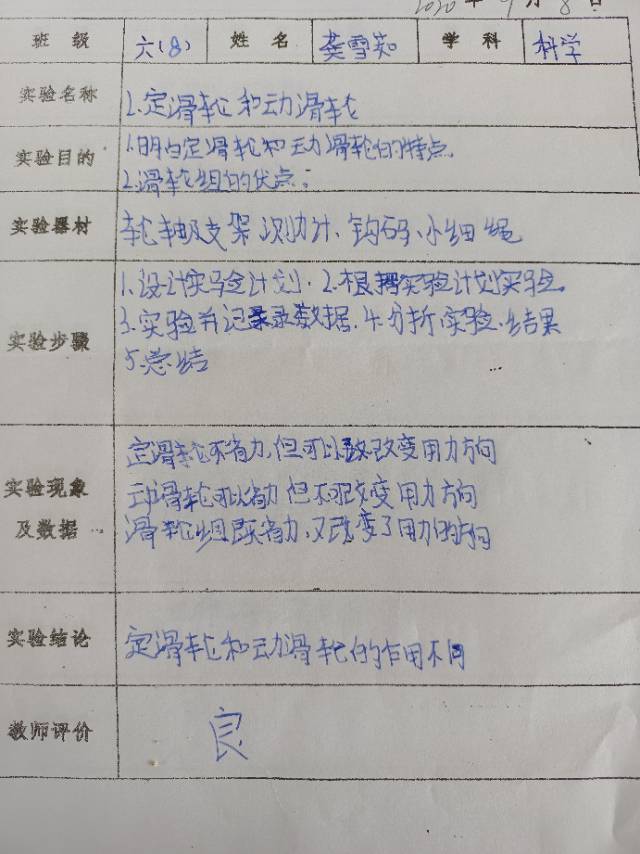 2020年9月8日
班级 六(8) 姓名 龚雪知 学科 科学
实验名称 1.定滑轮和动滑轮
实验目的 1.明白定滑轮和动滑轮的特点
2.滑轮组的优点;
实验器材 轮轴及支架 测力计、钩码、小细绳
实验步骤 1.设计实验计划. 2.根据实验计划实验.
3.实验并记录数据. 4.分析实验结果
5.总结
实验现象及数据 定滑轮不省力,但可以改变用力方向
动滑轮可以省力但不可改变用力方向
滑轮组既省力,又改变了用力的方向
实验结论 定滑轮和动滑轮的作用不同
教师评价 良